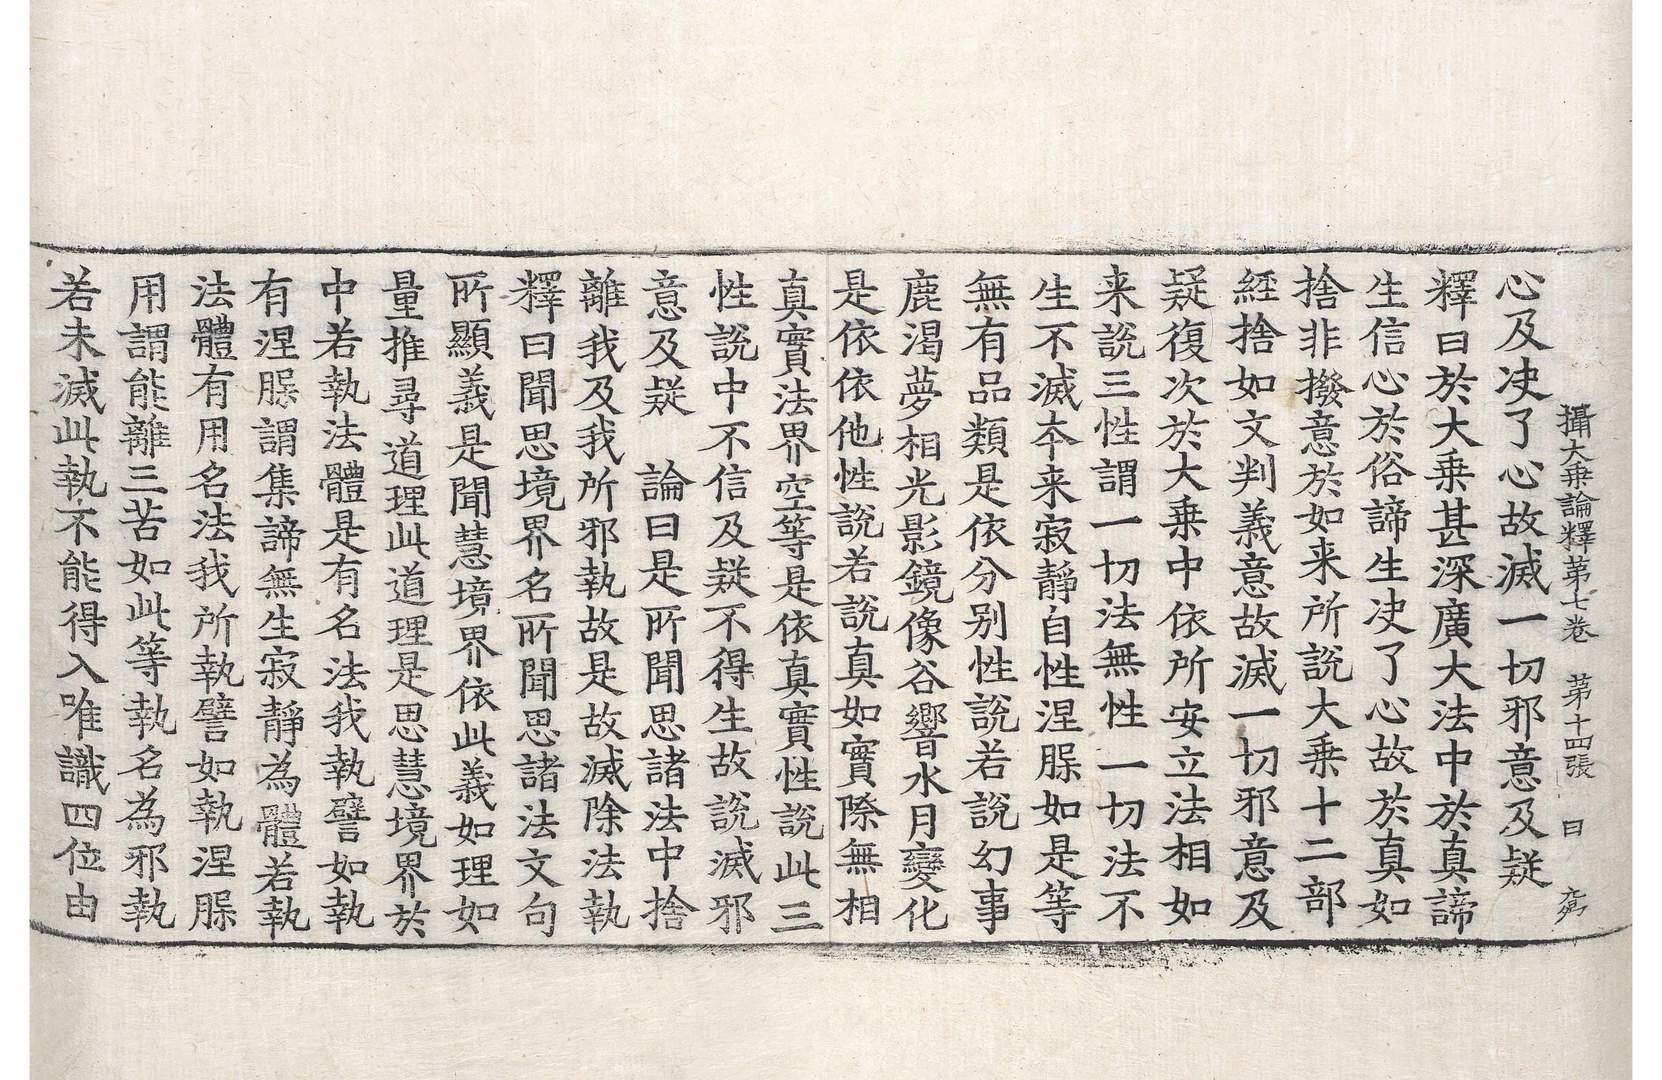 攝大乗論釋第七卷　第十四張　日
心及决了心故滅一切邪意及疑
釋曰於大乗甚深廣大法中於真諦
生信心於俗諦生决了心故於真如
捨非撥意於如来所説大乗十二部
經捨如文判義意故滅一切邪意及
疑復次於大乗中依所安立法相如
来説三性謂一切法無性一切法不
生不滅夲来寂靜自性涅槃如是等
無有品類是依分别性説若説幻事
鹿渴夢相光影鏡像谷響水月變化
是依依他性説若説真如實際無相
真實法界空等是依真實性説此三
性説中不信及疑不得生故説滅邪
意及疑　論曰是所聞思諸法中捨
離我及我所邪執故是故滅除法執
釋曰聞思境界名所聞思諸法文句
所顯義是聞慧境界依此義如理如
量推尋道理此道理是思慧境界於
中若執法體是有名法我執譬如執
有涅槃謂集諦無生寂靜為體若執
法體有用名法我所執譬如執涅槃
用謂能離三苦如此等執名為邪執
若未滅此執不能得入唯識四位由